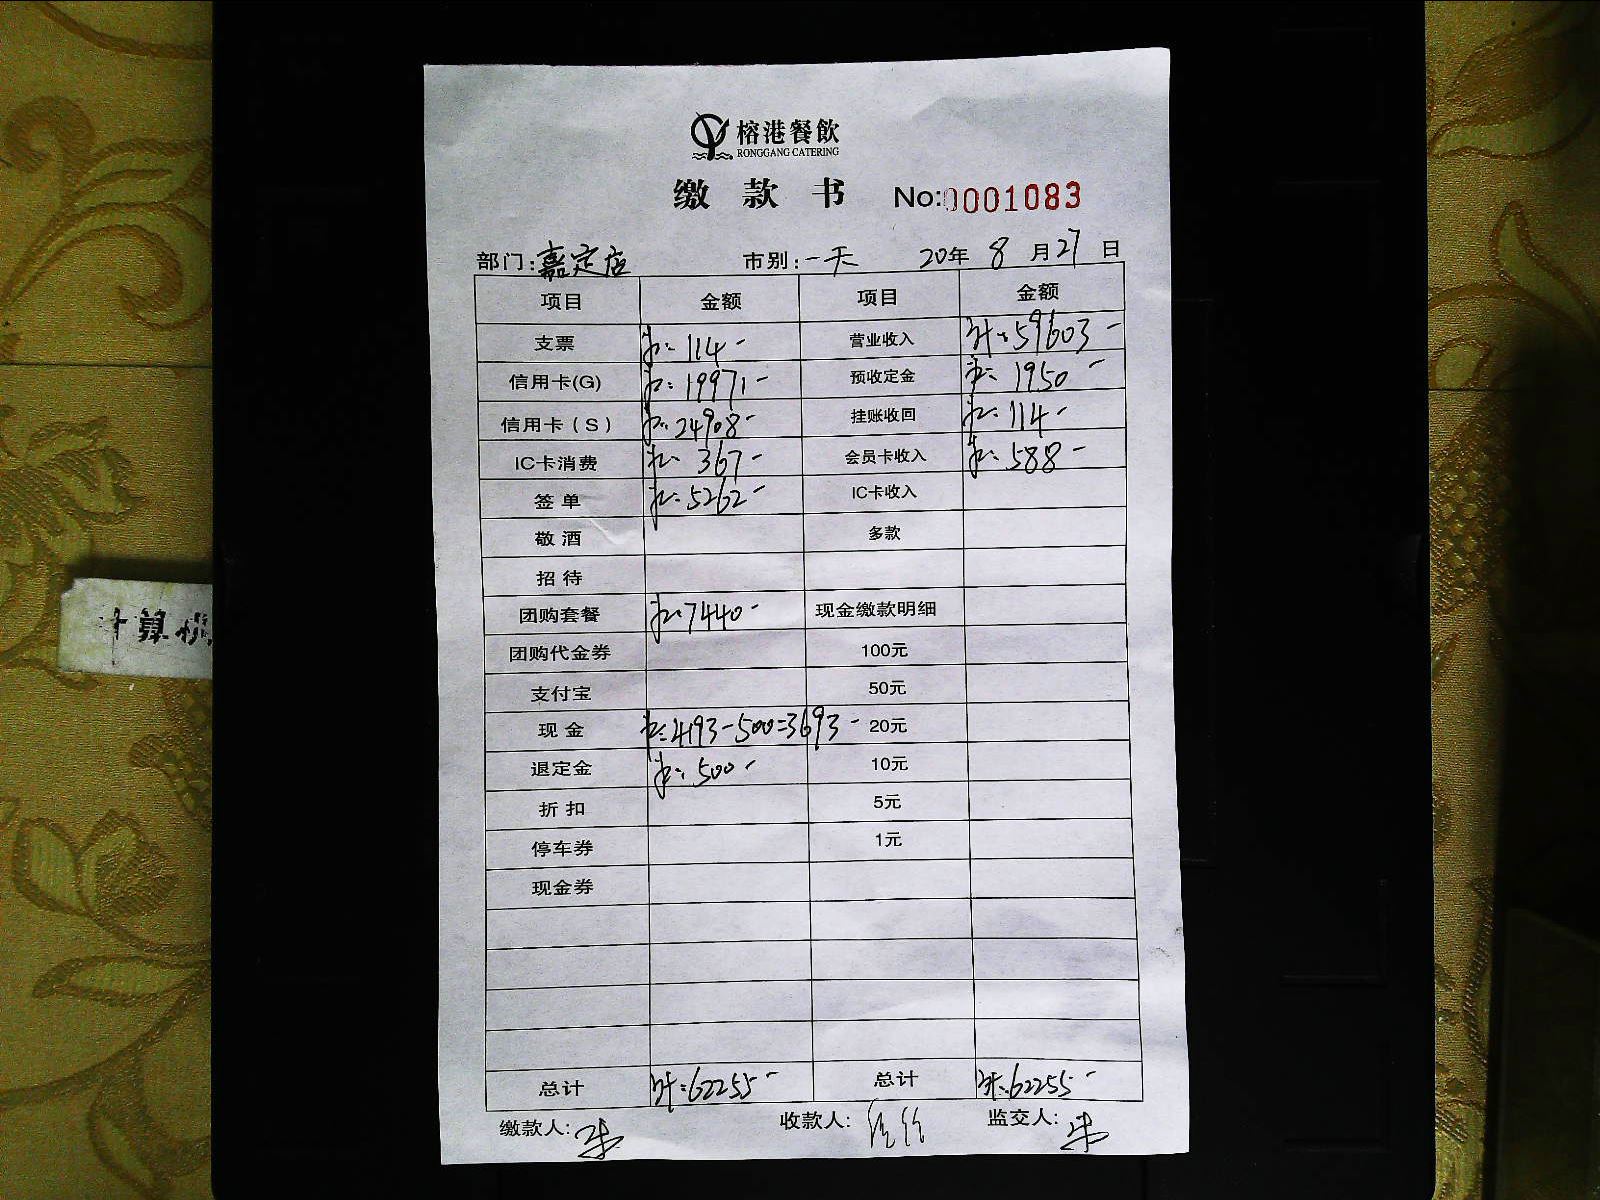 榕港餐飲
RONGGANG CATERING
缴款书 No:0001083
部门:嘉定店 市别:一天 20年 8月27日
项目 金额 项目 金额
支票 114- 营业收入 计:59603-
信用卡(G) 19971- 预收定金 1950-
信用卡(S) 24908- 挂账收回 114-
IC卡消费 367- 会员卡收入 588-
签单 5262- IC卡收入
敬酒 多款
招待
团购套餐 7440- 现金缴款明细
团购代金券 100元
支付宝 50元
现金 4193-500=3693- 20元
退定金 500- 10元
折扣 5元
停车券 1元
现金券
总计 计:62255- 总计 计:62255-
缴款人: 收款人: 监交人:
计算机